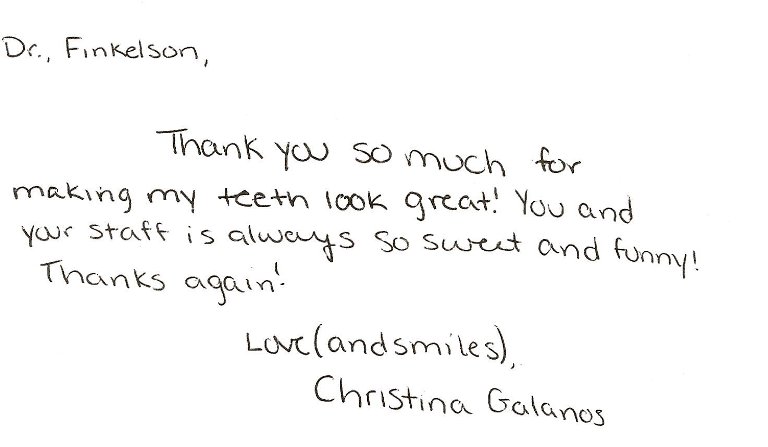 Dr., Finkelson,
Thank you so much for
making my teeth look great! You and
your staff is always so sweet and funny!
Thanks again!
Love(and smiles),
Christina Galanos